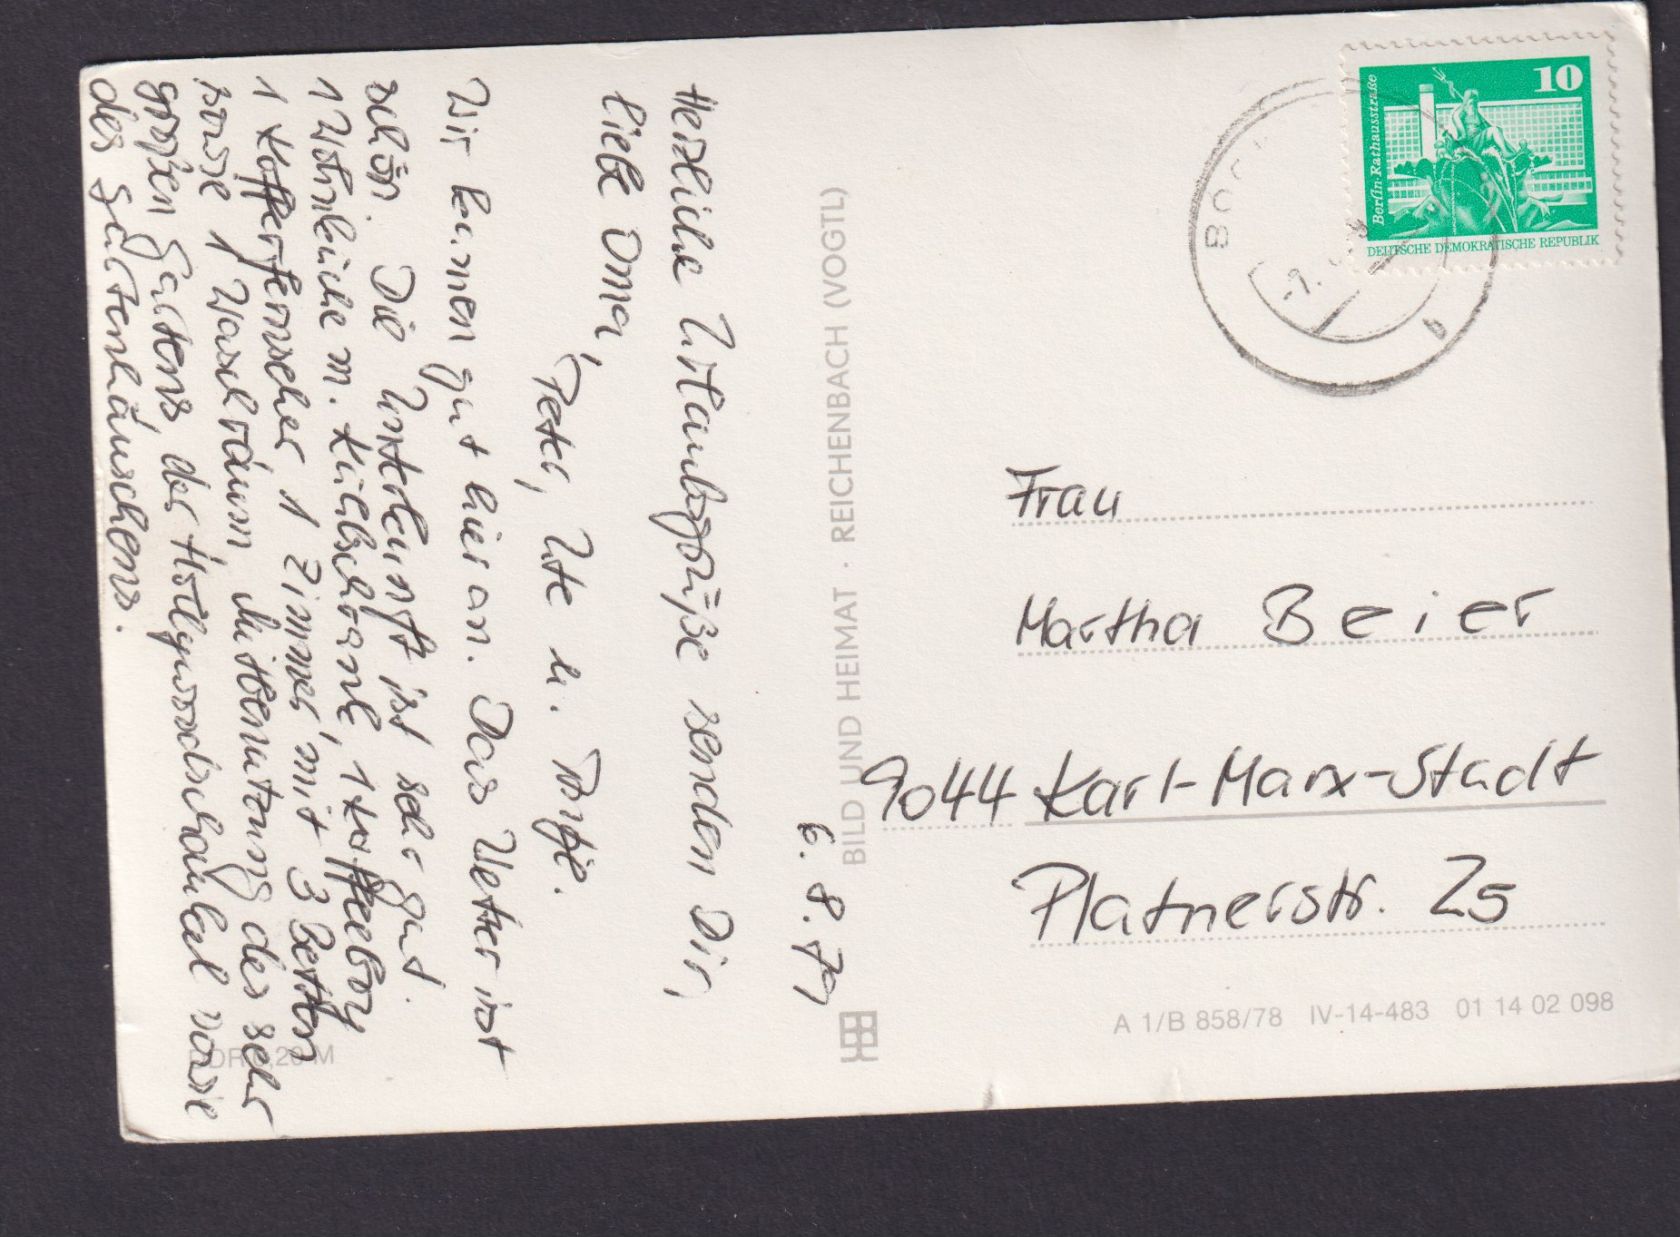 6. 8. 79
Herzliche Urlaubsgrüße senden Dir,
liebe Oma,
Peter, Ute u. Antje.
Wir kamen gut hier an. Das Wetter ist
schön. Die Unterkunft ist sehr gut.
1 Wohnküche m. Kühlschrank, 1 Kaffeeboy
1 Kofferfernseher 1 Zimmer mit 3 Betten
sowie 1 Waschraum, Mitbenutzung des sehr
großen Gartens, der Hollywoodschaukel sowie
des Gartenhäuschens.
BILD UND HEIMAT · REICHENBACH (VOGTL)
10
Berlin·Rathausstraße
DEUTSCHE DEMOKRATISCHE REPUBLIK
-7.
b
Frau
Martha Beier
9044 Karl-Marx-Stadt
Platnerstr. 25
A 1/B 858/78 IV-14-483 01 14 02 098